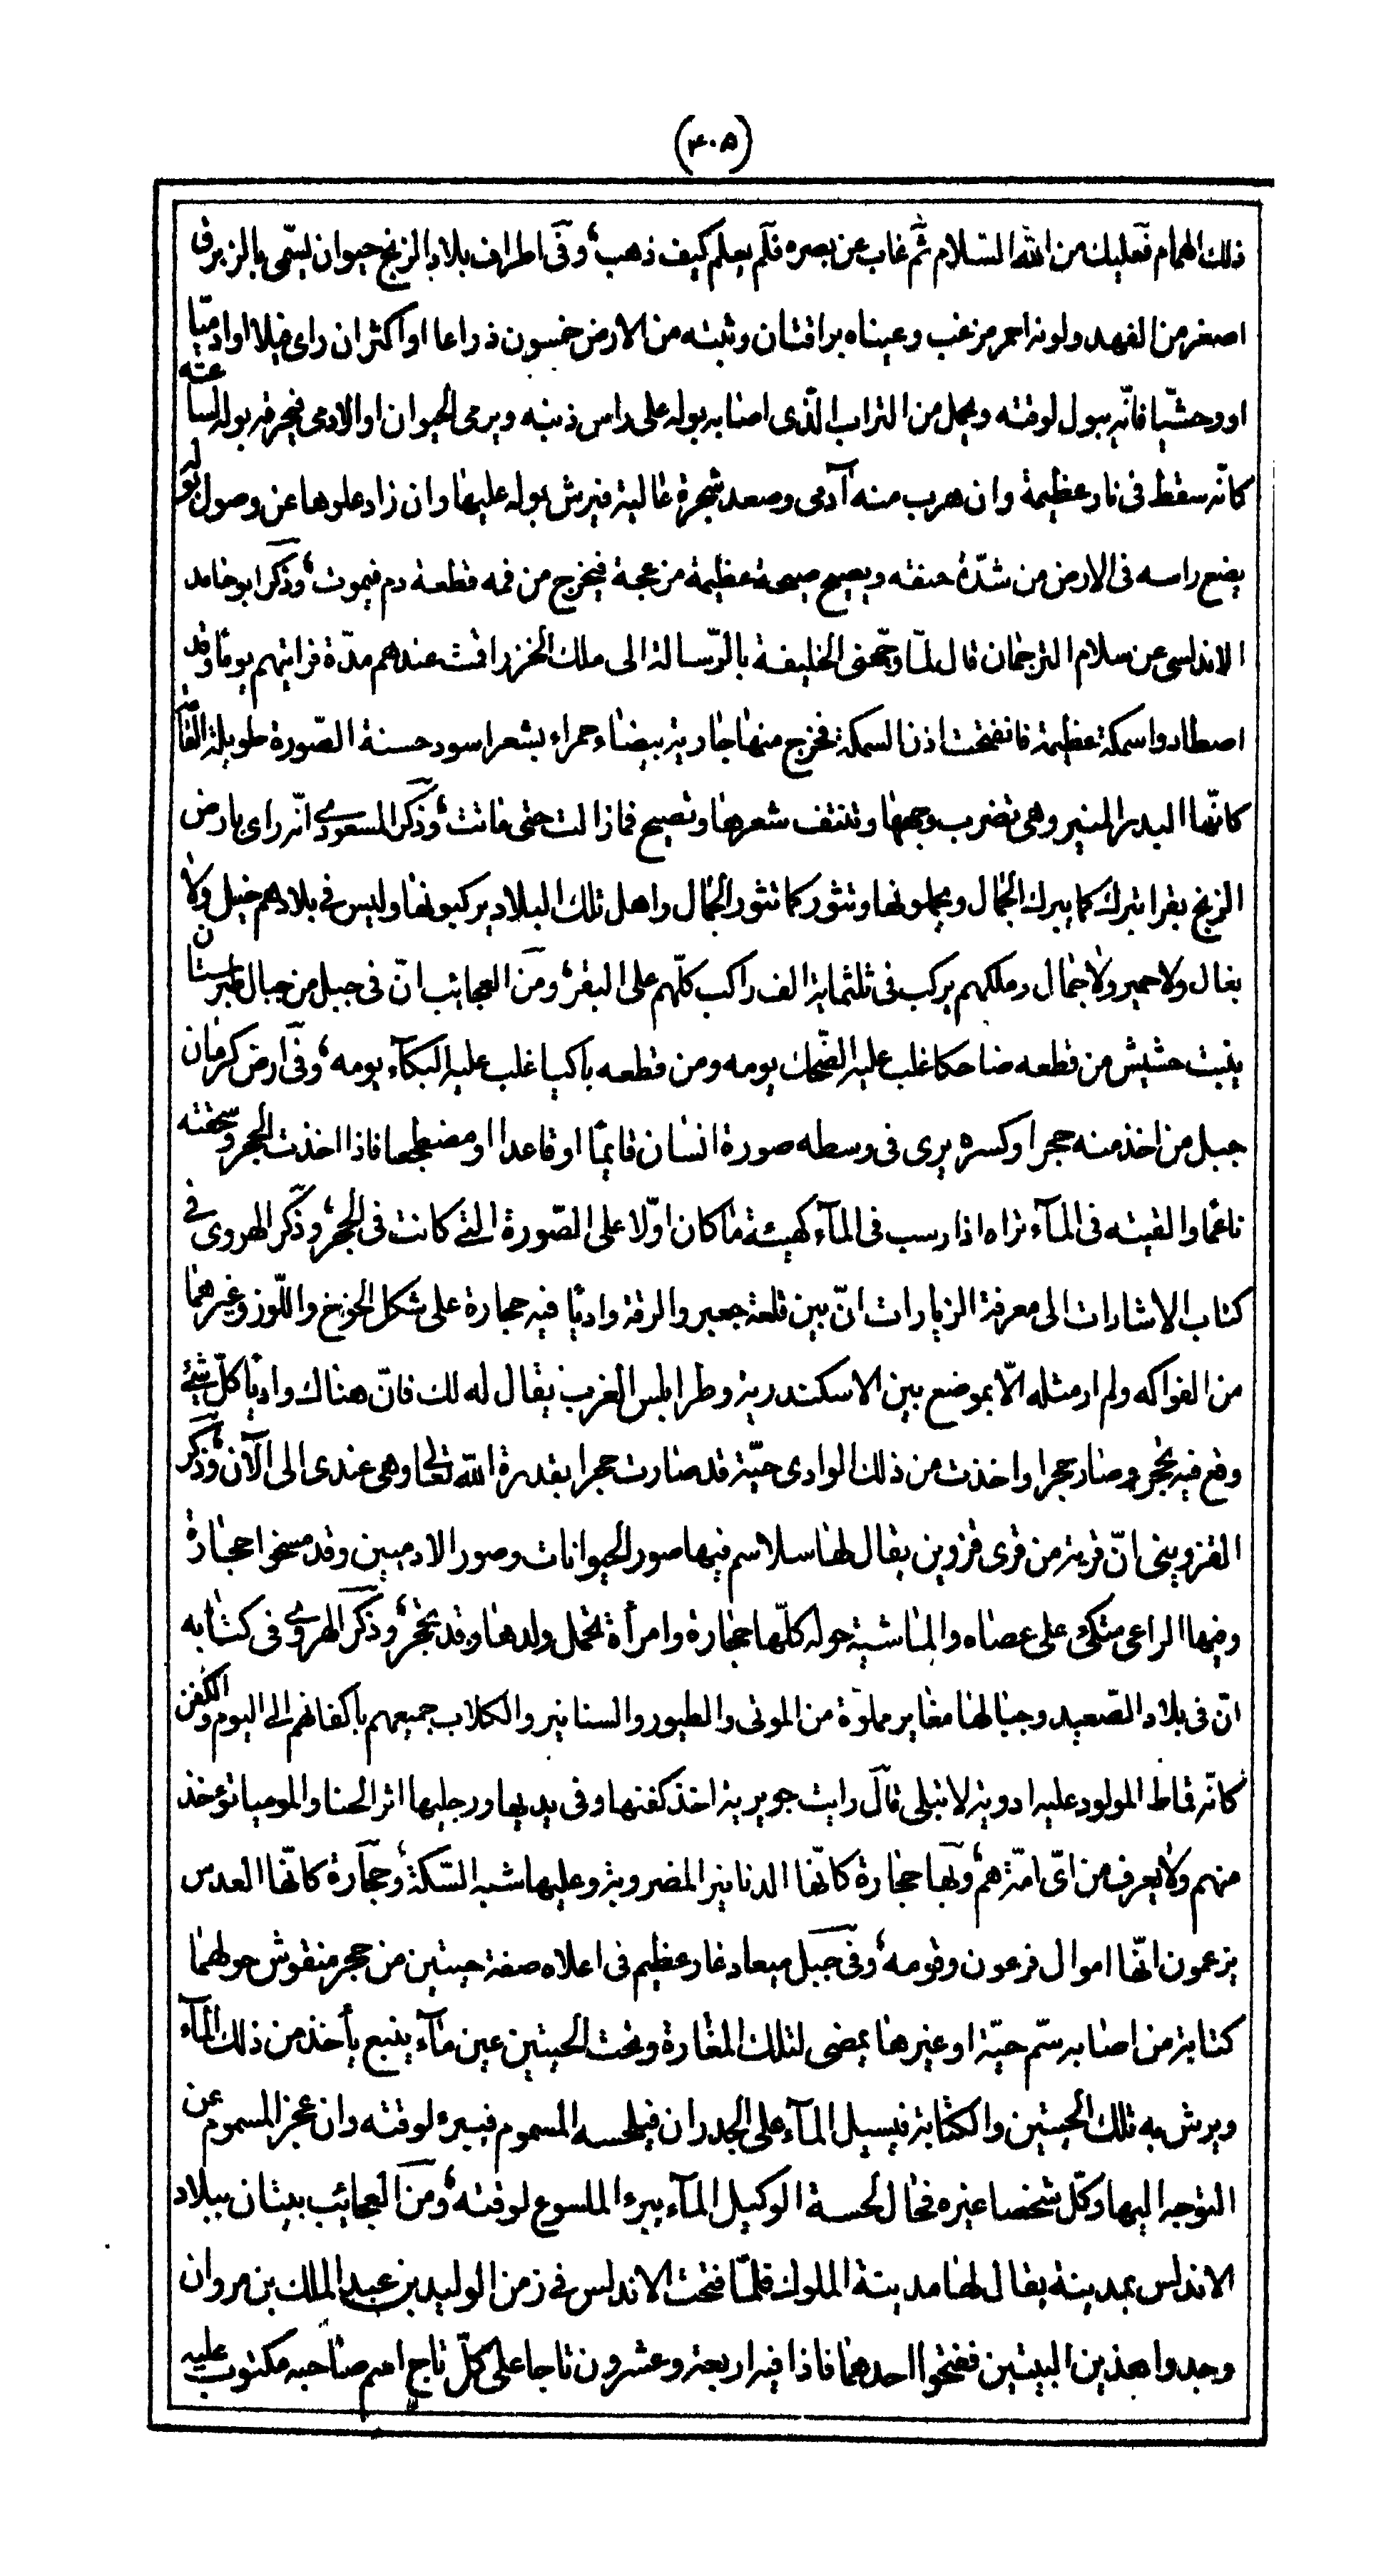 (۴۰۵)
ذلك الهمام فعليك من الله السلام ثم غاب عن بصره فلم يعلم كيف ذهب وفى اطراف بلاد الزنج حيوان ليتمى بالزبرق
اصغر من الفهد ولونه احمر مزغب وعيناه براقتان وثبته من الارض خمسون ذراعا او اكثر ان راى فيلا او ادميّا
او وحشيّا فانّه يبول لوقته ويحمل من التراب الّذى اصابه بوله على راس ذنبه ويرمى الحيوان او الادمى فيحرقه بوله لساعته
كانّه سقط فى نار عظيمة وان هرب منه آدمى وصعد شجرة عالية فيرش بوله عليها وان زاد علوها عن وصول بوله
يضع راسه فى الارض من شدّة حنقه ويصيح صيحة عظيمة مزعجة فيخرج من فمه قطعة دم فيموت وذكر ابو حامد
الاندلسى عن سلام الترجمان قال لمّا وجّهنى الخليفة بالرّسالة الى ملك الخزر اقمت عندهم مدّة فرايتهم يوما وقد
اصطادوا سمكة عظيمة فانفتحت اذن السمكة فخرج منها جارية بيضاء حمراء بشعر اسود حسنة الصّورة طويلة القامة
كانّها البدر المنير وهى تضرب وجهها وتنتف شعرها وتصيح فمازالت حتى ماتت وذكر المسعودى انّه راى بارض
الزنج بقرا تبرك كما يبرك الجمال ويحملونها وتثور كما تثور الجمال واهل تلك البلاد يركبونها وليس فى بلادهم خيل ولا
بغال ولا حمير ولا جمال وملكهم يركب فى ثلثمايه الف راكب كلّهم على البقر ومن العجايب انّ فى جبل من جبال طبرستان
ينبت حشيش من قطعه ضاحكا غلب عليه الضّحك يومه ومن قطعه باكيا غلب عليه البكآء يومه وفى ارض كرمان
جبل من اخذ منه حجرا وكسره يرى فى وسطه صورة انسان قايمًا او قاعدا او مضطجعا فاذا اخذت الحجر وسحقته
ناعما والقيته فى المآء تراه اذا رسب فى المآء كهيئة ما كان اوّلا على الصّورة التى كانت فى الحجر وذكر الهروى فى
كتاب الاشارات الى معرفة الزيارات انّ بين قلعة جعبر والرقة واديًا فيه حجارة على شكل الخوخ واللّوز وغيرهما
من الفواكه ولم ار مثله الّا بموضع بين الاسكندرية وطرابلس الغرب يقال له لك فانّ هناك واديًا كلّ شئ
وقع فيه تحجر وصار حجرا واخذت من ذلك الوادى حيّة قد صارت حجرا بقدرة الله تعالى وهى عندى الى الآن وذكر
القزوينى انّ قرية من قرى قزوين يقال لها سلاسم فيها صور الحيوانات وصور الادميين وقد مسخوا حجارة
وفيها الراعى متكى على عصاه والماشية حوله كلّها حجارة وامرأة تحمل ولدها وقد تحجر وذكر الهروى فى كتابه
انّ فى بلاد الصّعيد وجبالها مغاير مملوّة من الموتى والطيور والسنانير والكلاب جميعهم باكفانهم الى اليوم والكفن
كانّه قماط المولود عليه ادوية لا تبلى قال رايت جويرية اخذ كفنها وفى يديها ورجليها اثر الحنا والموميا تؤخذ
منهم ولا يعرف من اىّ امّة هم وبها حجارة كانّها الدنانير المضروبة وعليها شبه السّكة وحجارة كانّها العدس
يزعمون انّها اموال فرعون وقومه وفى جبل ميعاد غار عظيم فى اعلاه صفة حيتين من حجر منقوش حولهما
كتاية من اصابه سّم حيّة او غيرها يمضى لتلك المغارة وتحت الحيتين عين مآء ينبع يأخذ من ذلك المآء
ويرش به تلك الحيتين والكتابة فيسيل المآء على الجدران فيلحسه المسموم فيبرء لوقته وان عجز المسموم عن
التوجه اليها وكّل شخصا غيره فحال لحسة الوكيل المآء يبرء الملسوع لوقته ومن العجايب بيتان ببلاد
الاندلس بمدينة يقال لها مدينة الملوك فلمّا فتحت الاندلس فى زمن الوليد بن عبد الملك بن مروان
وجدوا هذين البيتين ففتحوا احدهما فاذا فيه اربعة وعشرون تاجا على كلّ تاج اسم صاحبه مكتوب عليه